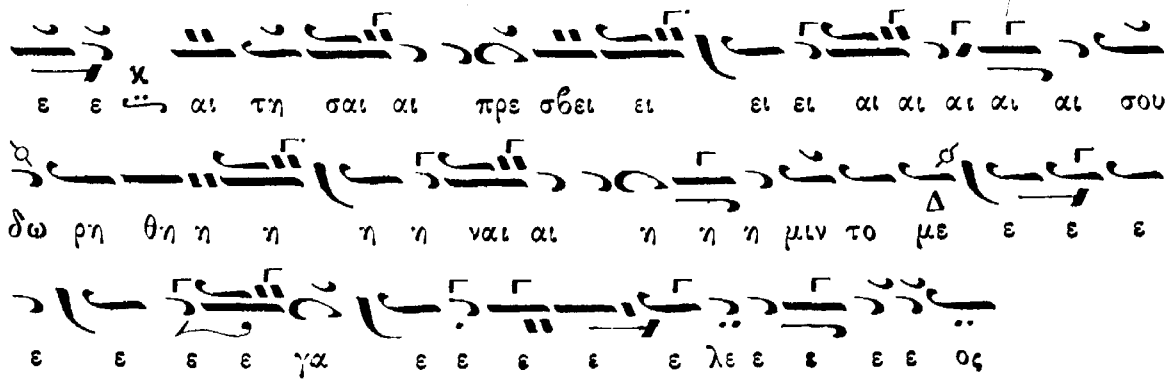 ε ε αι τη σαι αι πρε σβει ει ει ει αι αι αι αι αι σου
δω ρη θη η η η η ναι αι η η η μιν το με ε ε ε
ε ε ε ε γα ε ε ε ε ε λε ε ε ε ε ος